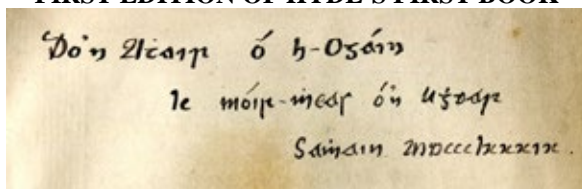 FIRST EDITION OF HYDE'S FIRST BOOK
Do'n Aṫair ó h-Ogáin
le móir-ṁeas ó'n Uġdar
Saṁain MDccclxxxix.